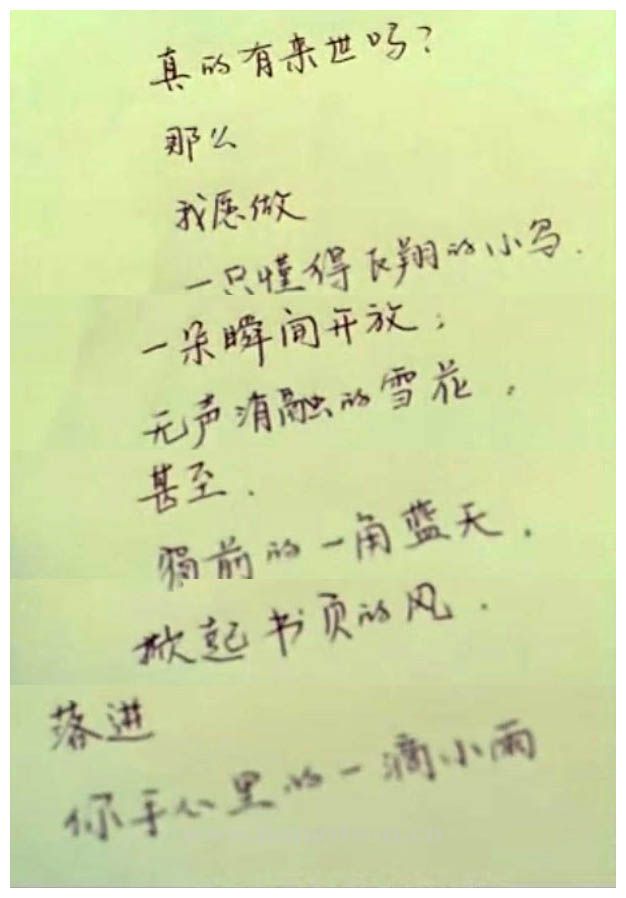 真的有来世吗？
那么
我愿做
一只懂得飞翔的小鸟.
一朵瞬间开放，
无声消融的雪花，
甚至.
前的一角蓝天.
掀起书页的风.
落进
你手心里的一滴小雨